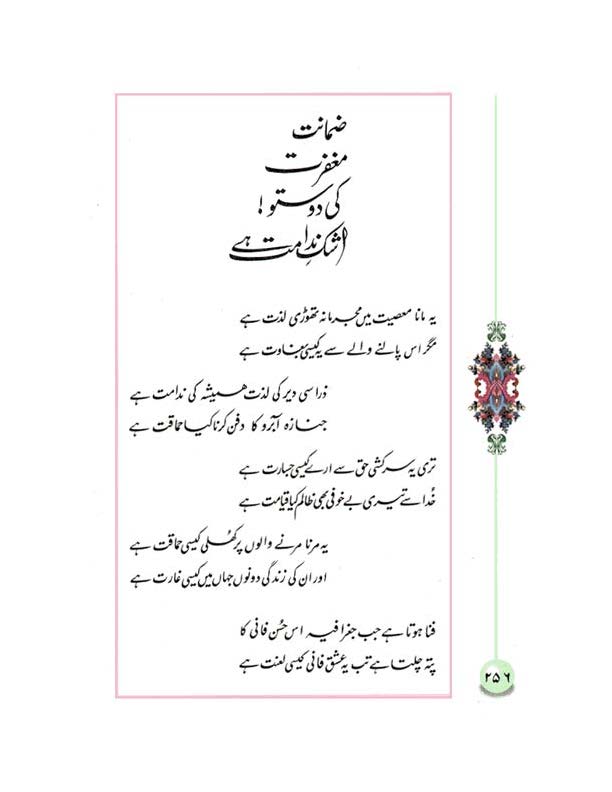 ضمانت
مغفرت
کی دوستو!
اشک ندامت ہے
یہ مانا معصیت میں مجرمانہ تھوڑی لذت ہے
مگر اس پالنے والے سے یہ کیسی بغاوت ہے
ذرا سی دیر کی لذت ہمیشہ کی ندامت ہے
جنازہ آبرو کا دفن کرنا کیا حماقت ہے
تری یہ سرکشی حق سے ارے کیسی جسارت ہے
خُدا سے تیری بے خوفی بھی ظالم کیا قیامت ہے
یہ مرنا مرنے والوں پر کھُلی کیسی حماقت ہے
اور ان کی زندگی دونوں جہاں میں کیسی غارت ہے
فنا ہوتا ہے جب جغرافیہ اس حُسن فانی کا
پتہ چلتا ہے تب یہ عشق فانی کیسی لعنت ہے
۲۵۶